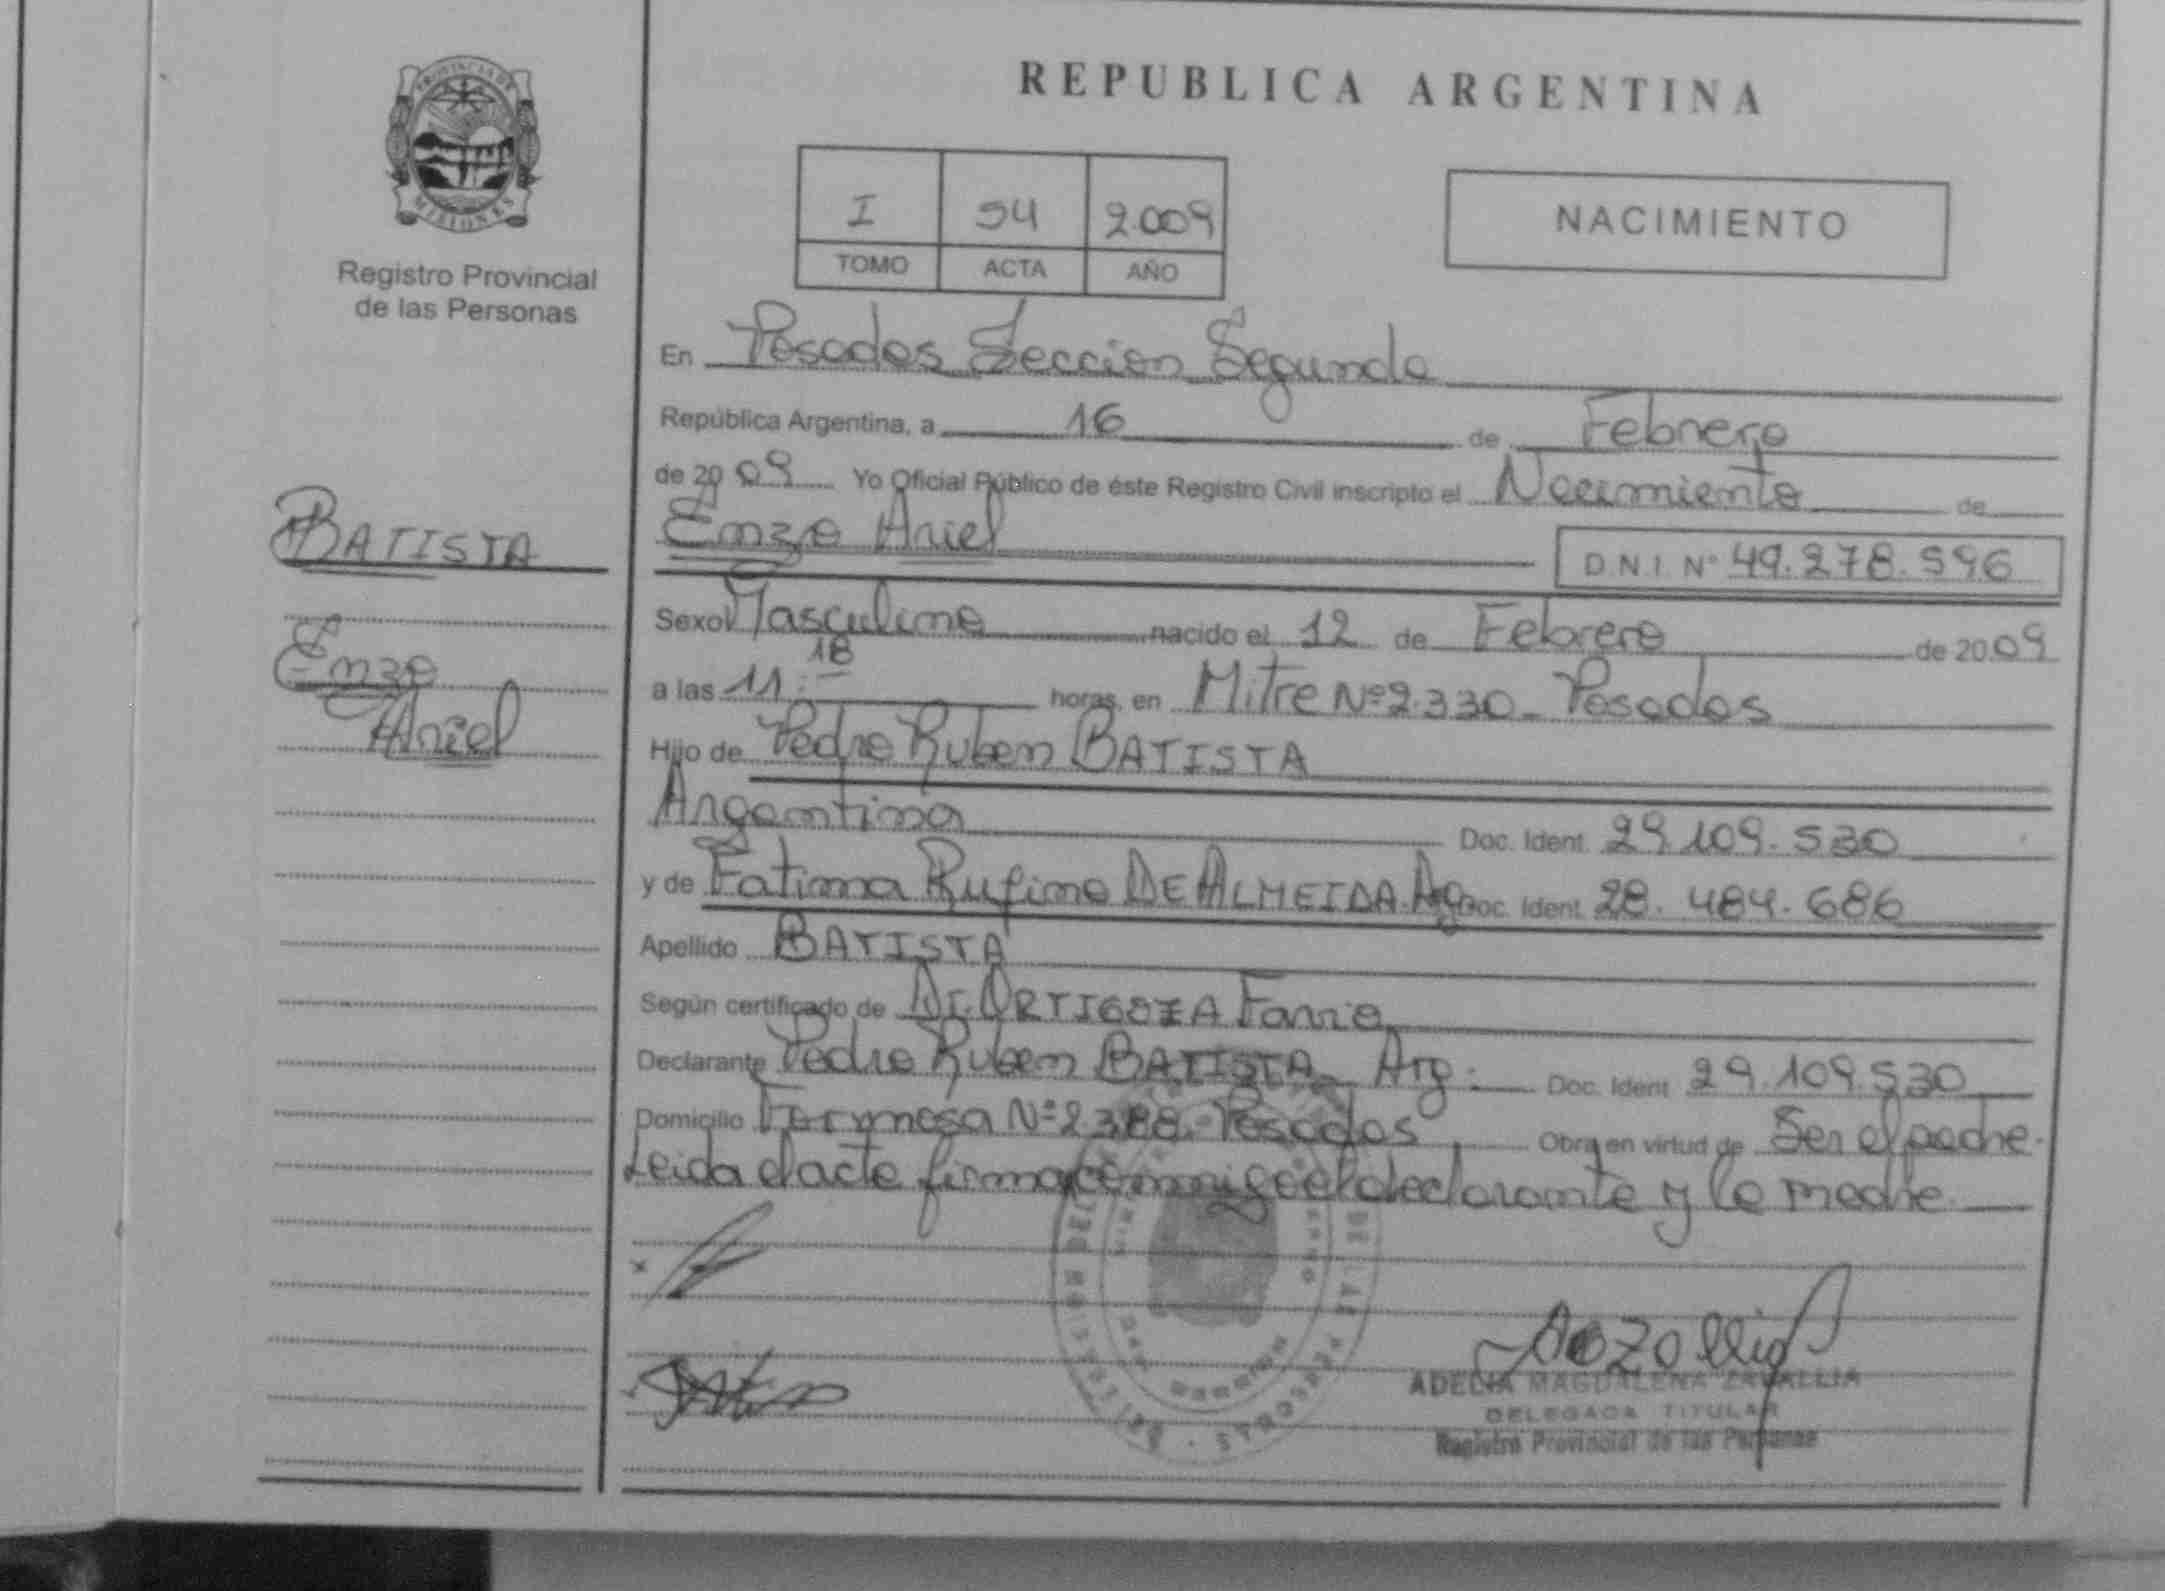 PROVINCIA DE
MISIONES
Registro Provincial
de las Personas
REPUBLICA ARGENTINA
I 54 2.009
TOMO ACTA AÑO
NACIMIENTO
En Posadas Sección Segunda
República Argentina, a 16 de Febrero
de 20 09 Yo Oficial Público de éste Registro Civil inscripto el Nacimiento de
BATISTA
Enzo Ariel
D.N.I. Nº 49.278.596
Sexo Masculino nacido el 12 de Febrero de 20 09
Enzo
Ariel
a las 11:18 horas, en Mitre Nº 2.330 - Posadas
Hijo de Pedro Ruben BATISTA
Argentina Doc. Ident. 29.109.530
y de Fatima Rufino DE ALMEIDA. Arg. Doc. Ident. 28.484.686
Apellido BATISTA
Según certificado de Dr. ORTIGOZA
Declarante Pedro Ruben BATISTA Arg. Doc. Ident. 29.109.530
Domicilio Formosa Nº 2388. Posadas Obra en virtud de Ser el padre.
Leida el acta firma conmigo el declarante y la madre
ADELIA MAGDALENA ZAVALLIA
DELEGADA TITULAR
Registro Provincial de las Personas